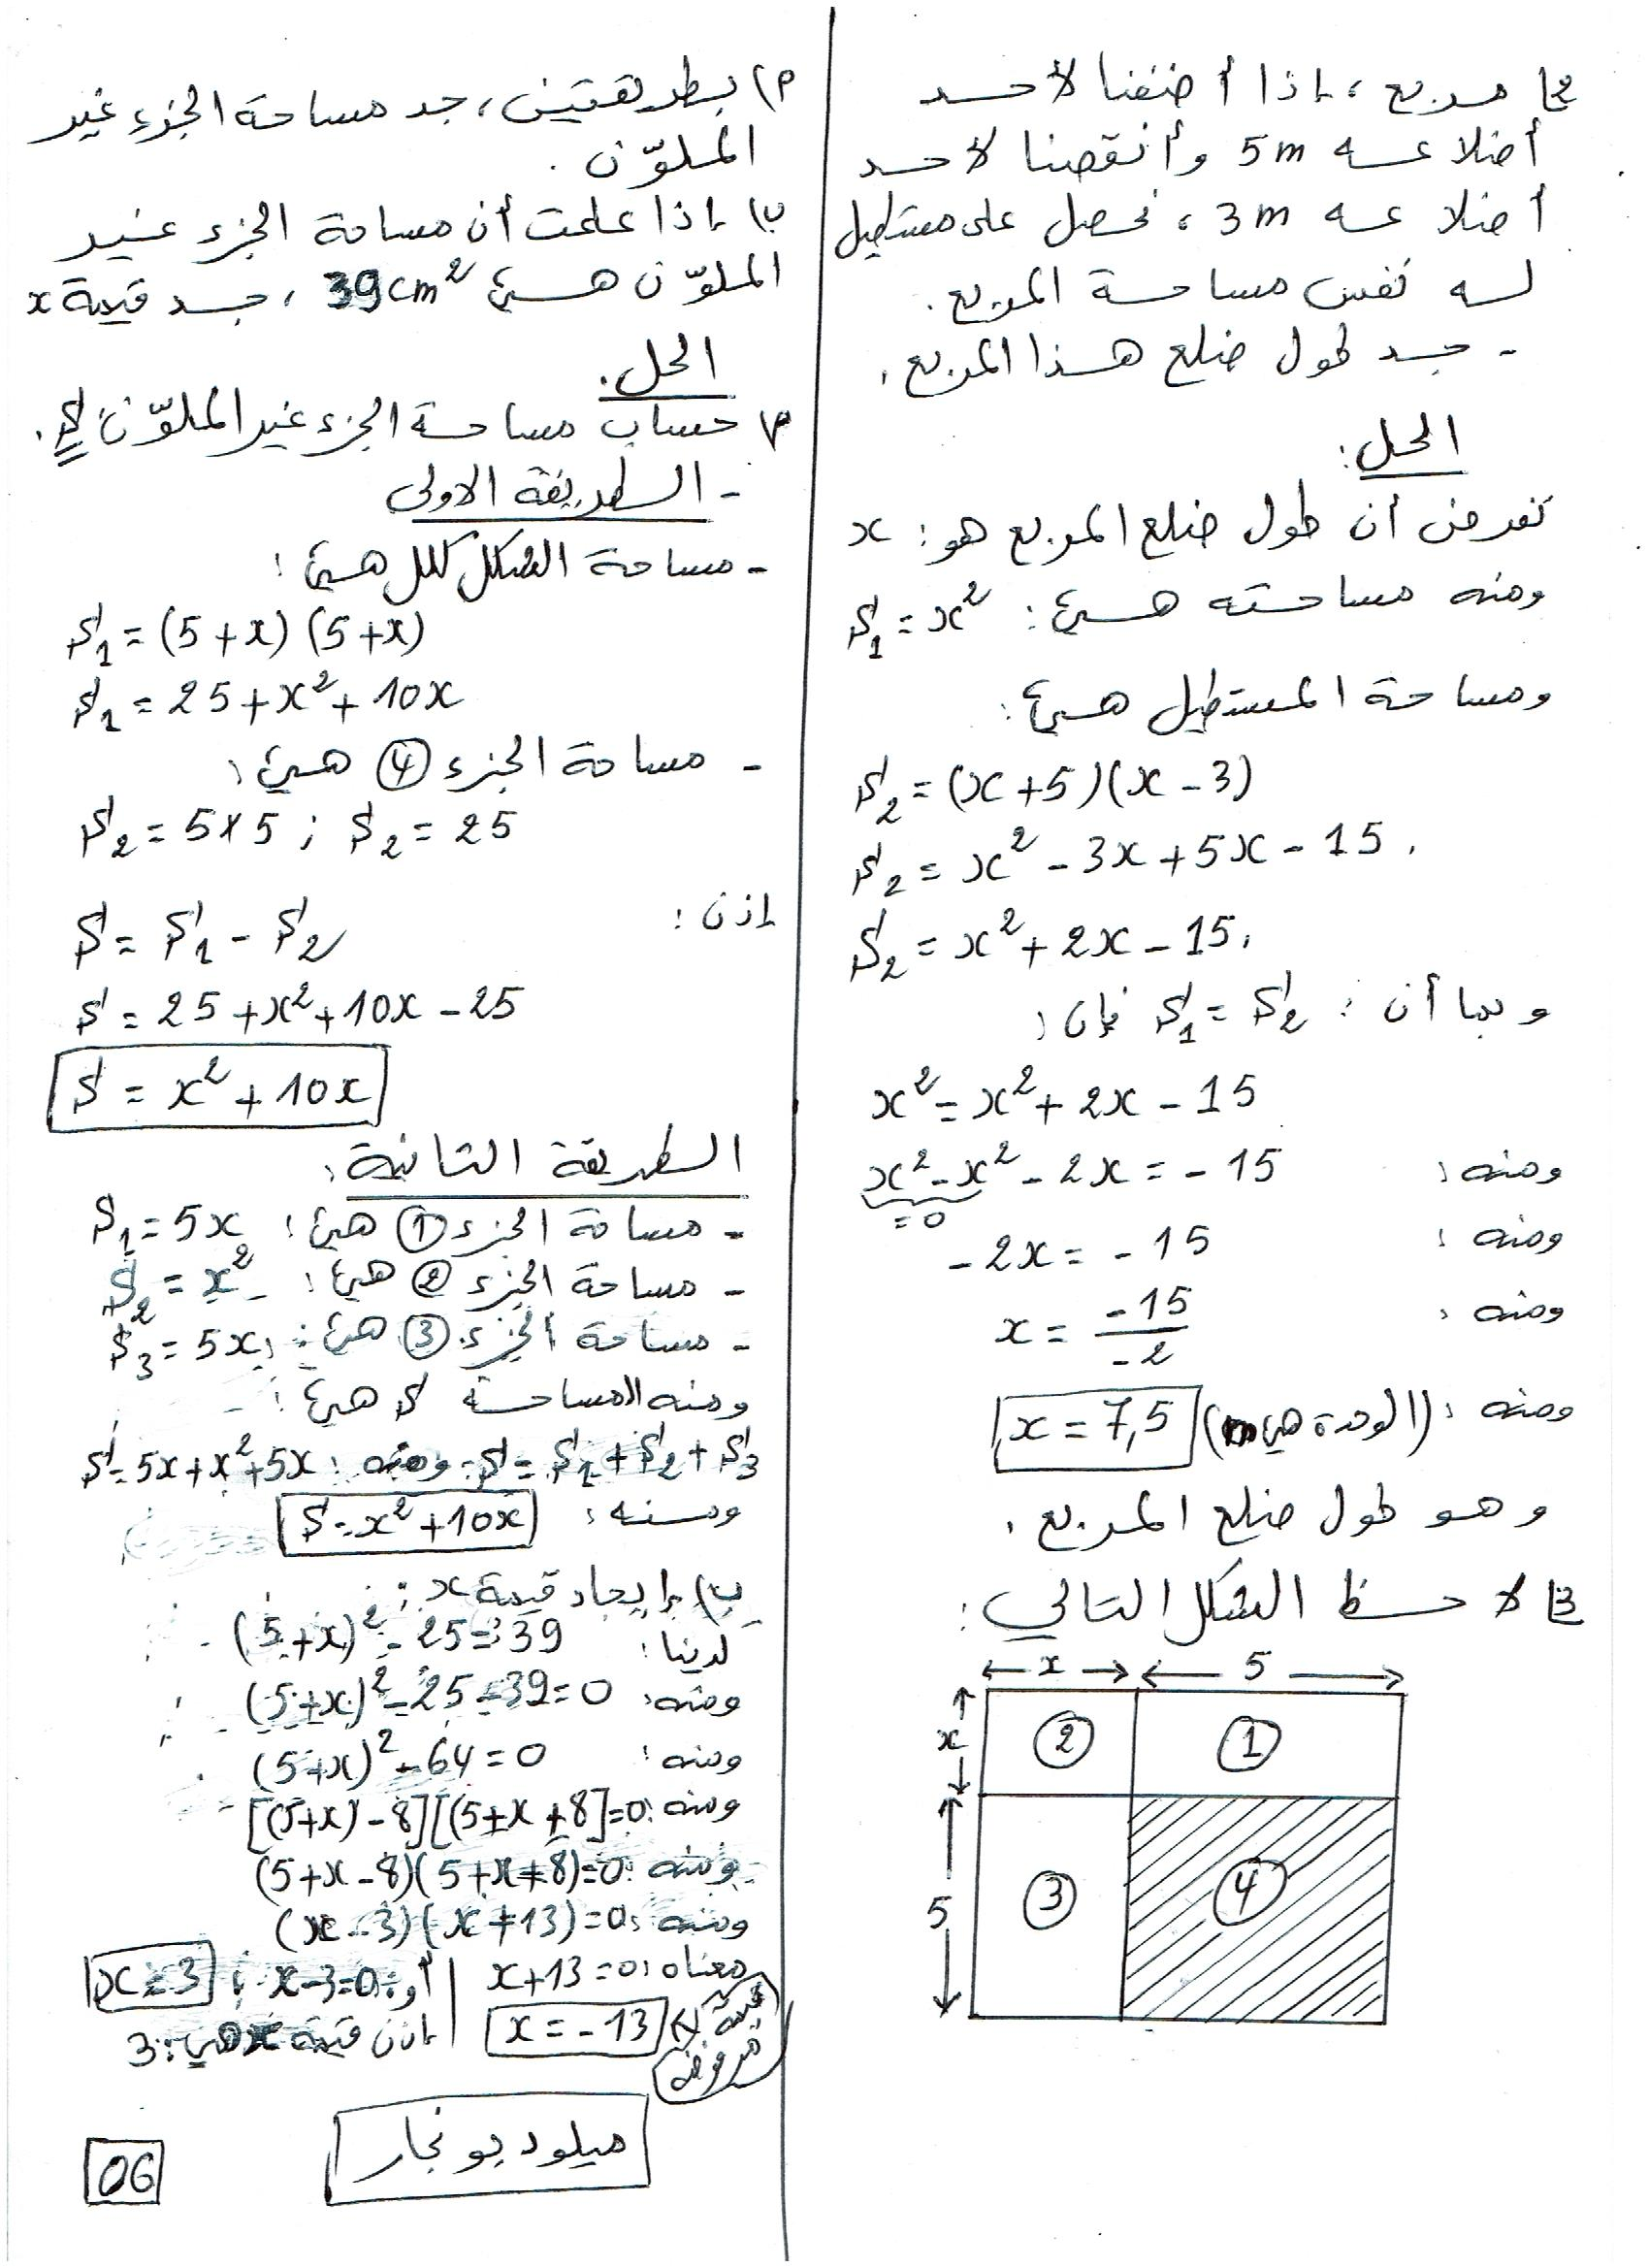 2) مربع، إذا أضفنا لأحد
أضلاعه 5m وأنقصنا لأحد
أضلاعه 3m، نحصل على مستطيل
له نفس مساحة المربع.
- جد طول ضلع هذا المربع.
الحل:
نفرض أن طول ضلع المربع هو: x
ومنه مساحته هي: S₁ = x²
ومساحة المستطيل هي:
S₂ = (x + 5)(x - 3)
S₂ = x² - 3x + 5x - 15.
S₂ = x² + 2x - 15.
وبما أن: S₁ = S₂ فإن:
x² = x² + 2x - 15
ومنه: x² - x² - 2x = - 15
= 0
ومنه: - 2x = - 15
ومنه: x = -15 / -2
ومنه: x = 7,5 (الوحدة هي m)
وهو طول ضلع المربع.
3) لاحظ الشكل التالي:
x 5
x ② ①
5 ③ ④
أ) بطريقتين، جد مساحة الجزء غير
الملوّن.
ب) إذا علمت أن مساحة الجزء غير
الملوّن هي 39cm²، جد قيمة x
الحل.
أ) حساب مساحة الجزء غير الملوّن S.
- الطريقة الاولى
- مساحة الشكل ككل هي:
S₁ = (5 + x) (5 + x)
S₁ = 25 + x² + 10x
- مساحة الجزء ④ هي:
S₂ = 5 × 5 ; S₂ = 25
إذن: S = S₁ - S₂
S = 25 + x² + 10x - 25
S = x² + 10x
الطريقة الثانية:
- مساحة الجزء ① هي: S₁ = 5x
- مساحة الجزء ② هي: S₂ = x²
- مساحة الجزء ③ هي: S₃ = 5x
ومنه المساحة S هي:
S = S₁ + S₂ + S₃ ومنه: S = 5x + x² + 5x
ومنه: S = x² + 10x
ب) إيجاد قيمة x:
لدينا: (5 + x)² - 25 = 39
ومنه: (5 + x)² - 25 - 39 = 0
ومنه: (5 + x)² - 64 = 0
ومنه: [(5+x) - 8][(5 + x + 8] = 0
ومنه: (5 + x - 8)(5 + x + 8) = 0
ومنه: (x - 3)(x + 13) = 0
معناه: x + 13 = 0 | أو: x - 3 = 0 ; x = 3
x = - 13 (قيمة x مرفوضة) | إذن قيمة x هي: 3
ميلود بونجار
06